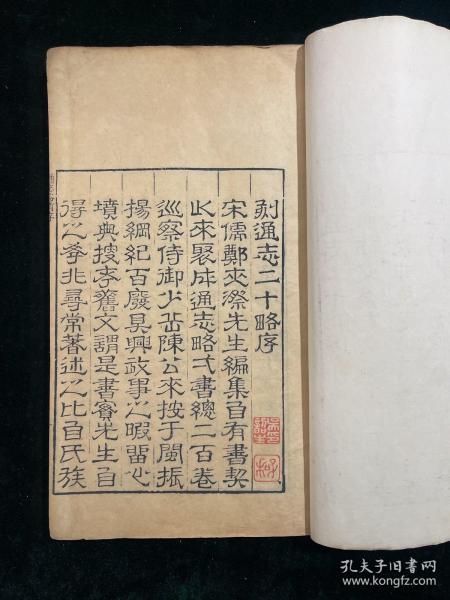 刻通志二十略序
宋儒鄭夾漈先生編集自有書契
以來聚成通志略弌書總二百卷
巡察侍御少岳陳公來按于閩振
揚綱紀百廢具興政事之暇留心
墳典搜考舊文謂是書實先生自
得之學非尋常著述之比自氏族
孔夫子旧书网
www.kongfz.com